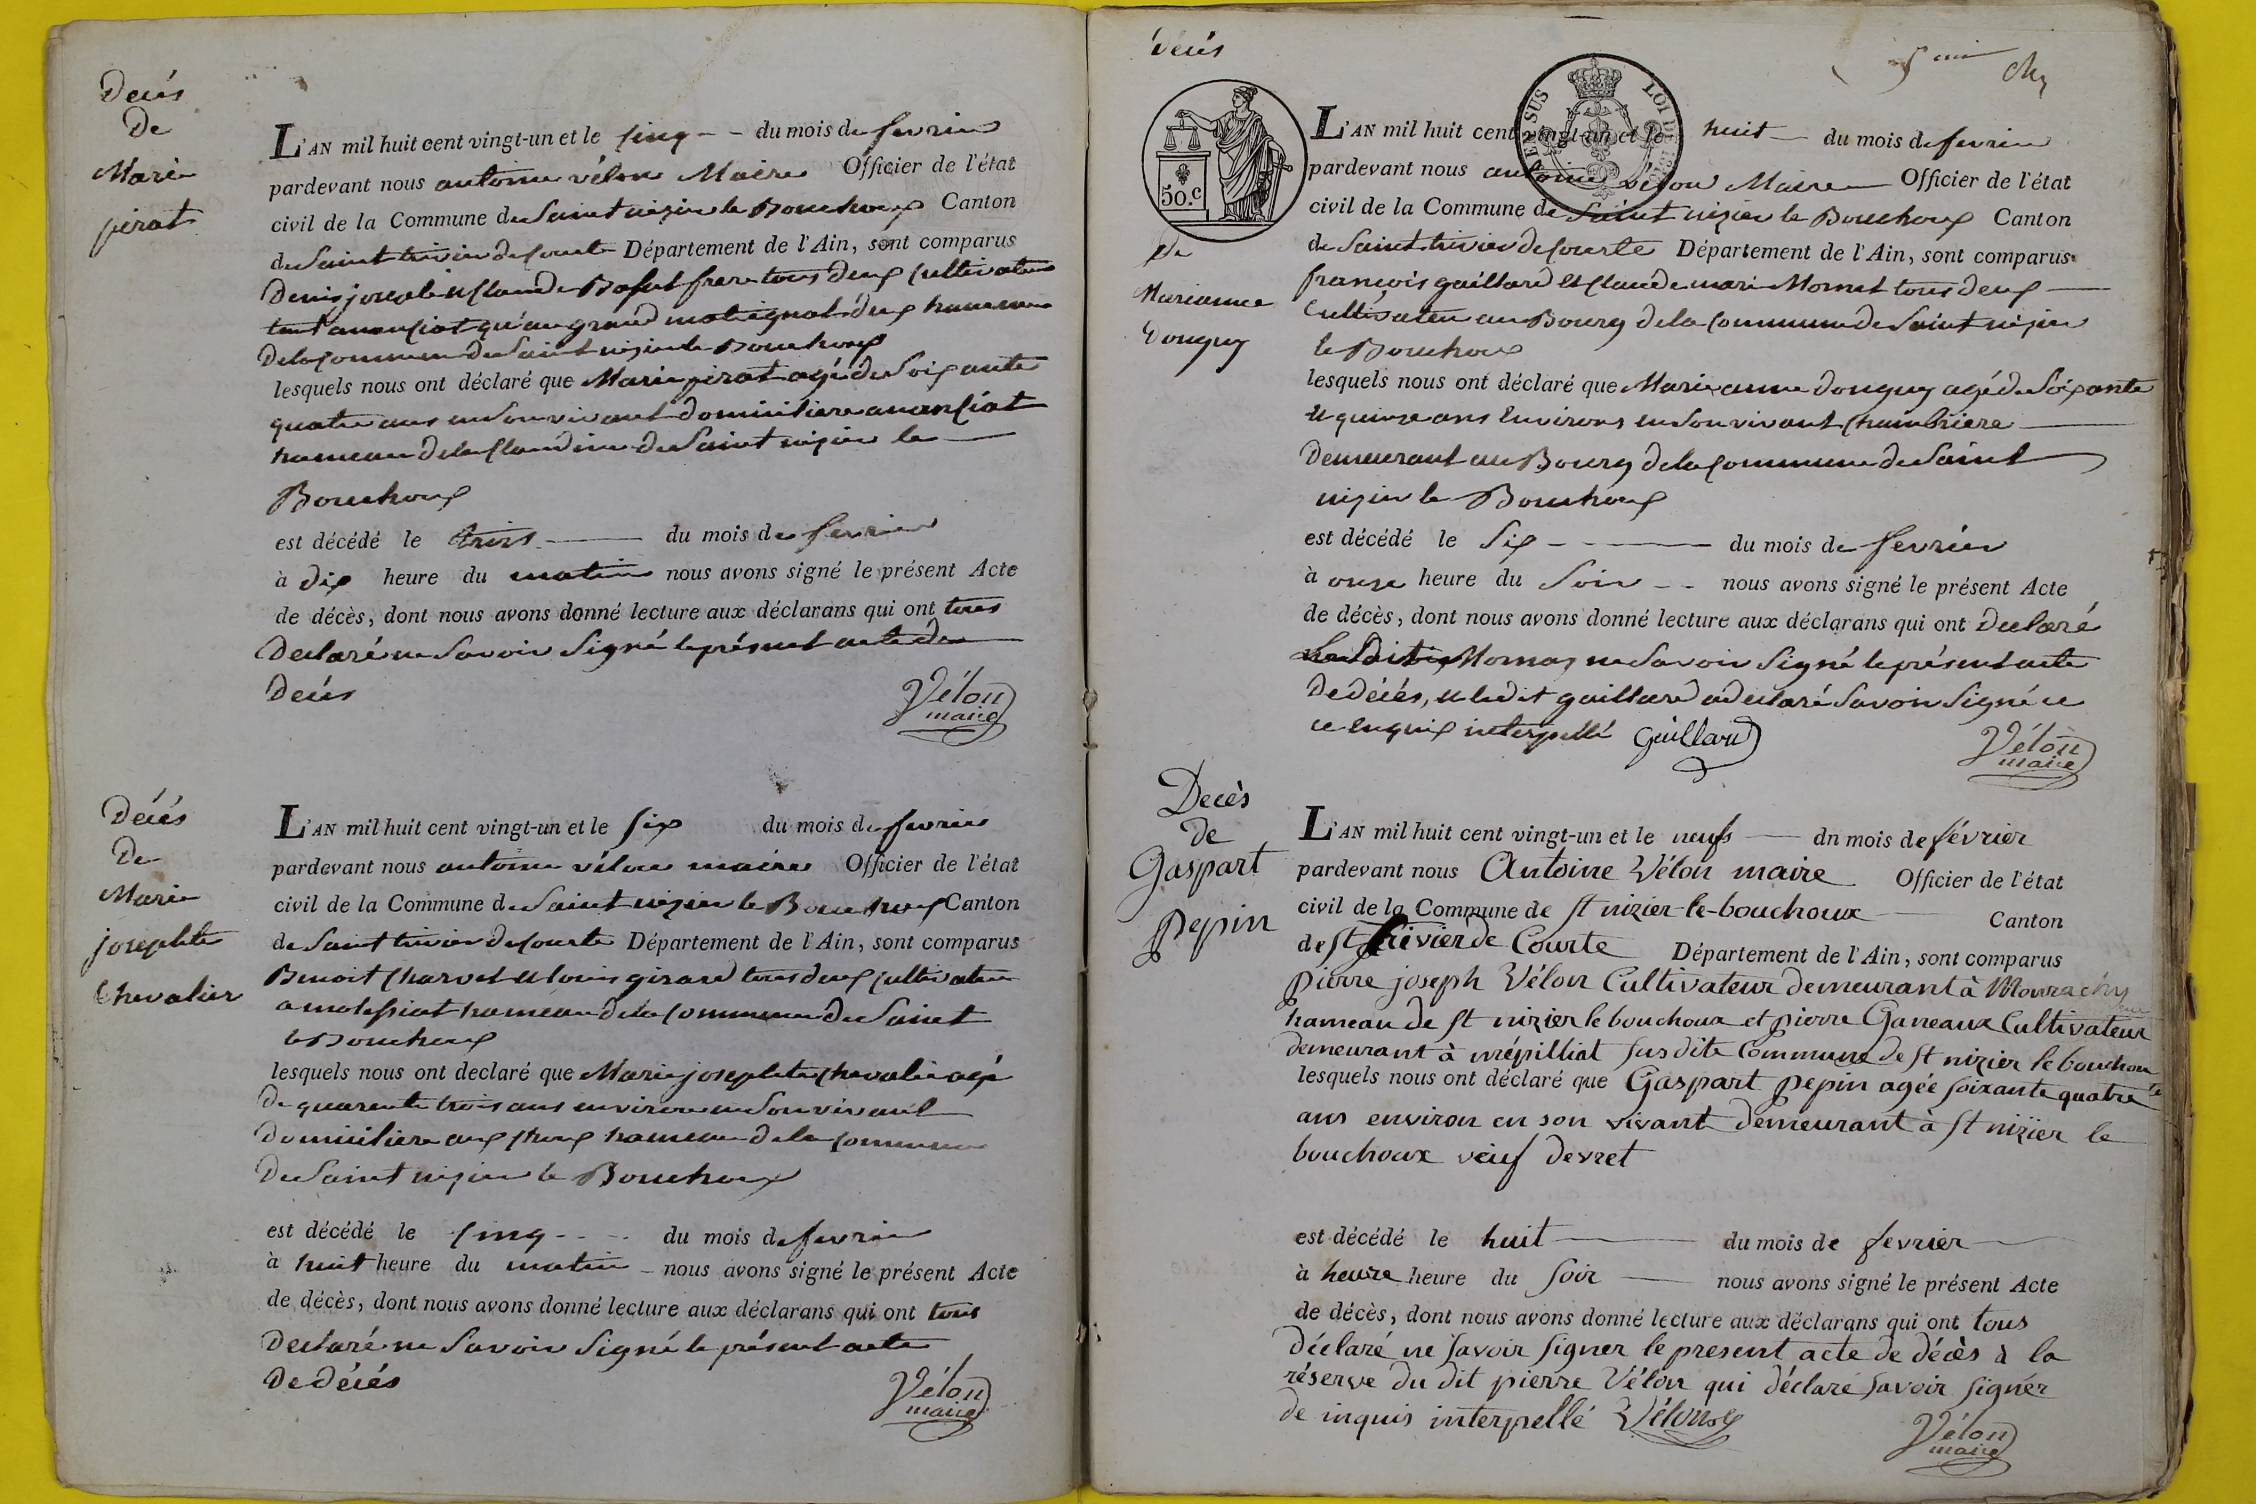 Decés
De
Marie
pirat
L'AN mil huit cent vingt-un et le cinq du mois de fevrier
pardevant nous antoine vélon Maire Officier de l'état
civil de la Commune de Saint nizier le Bouchoux Canton
de Saint trivier de Courte Département de l'Ain, sont comparus
Denis joseph et Claude Bafut frere tous deux Cultivateur
tant qu'au grand deux hameau
De la Commune de Saint nizier le Bouchoux
lesquels nous ont déclaré que Marie pirat agé de Soixante
quatre ans en Son vivant domiciliere
hameau de la de Saint nizier le
Bouchoux
est décédé le trois du mois de fevrier
à dix heure du matin nous avons signé le présent Acte
de décès, dont nous avons donné lecture aux déclarans qui ont tous
Declaré ne Savoir Signé le présent acte de
Decés
Vélon
maire
Décés
De
Marie
josephte
Chevalier
L'AN mil huit cent vingt-un et le Six du mois de fevrier
pardevant nous antoine vélon maire Officier de l'état
civil de la Commune de Saint nizier le Bouchoux Canton
de Saint trivier de Courte Département de l'Ain, sont comparus
Benoit Charvet et louis girard tous deux Cultivateur
a hameau de la Commune de Saint
le Bouchoux
lesquels nous ont declaré que Marie josephte Chevalier agé
De quarente trois ans environ en Son vivant
Domiciliere aux hameau de la Commune
De Saint nizier le Bouchoux
est décédé le Cinq du mois de fevrier
à huit heure du matin nous avons signé le présent Acte
de décès, dont nous avons donné lecture aux déclarans qui ont tous
Declaré ne Savoir Signé le présent acte
De décés
Vélon
maire
Decés
50.c
LOI DE
De
Marianne
Donguy
L'AN mil huit cent vingt-un et le huit du mois de fevrier
pardevant nous antoine vélon Maire Officier de l'état
civil de la Commune de Saint nizier le Bouchoux Canton
de Saint trivier de Courte Département de l'Ain, sont comparus
françois guillard et Claude marie Mornet tous deux
Cultivateur au Bourg de la Commune de Saint nizier
le Bouchoux
lesquels nous ont déclaré que Marie anne donguy agé de Soixante
et quinze ans Environs en Son vivant Chambriere
Demeurant au Bourg de la Commune de Saint
nizier le Bouchoux
est décédé le Six du mois de fevrier
à onze heure du Soir nous avons signé le présent Acte
de décès, dont nous avons donné lecture aux déclarans qui ont declaré
ne Savoir Signé le présent acte
De décés, et ledit guillard a declaré Savoir Signé
ce enquis interpellé Guillard
Vélon
maire
Decès
de
Gaspart
pepin
L'AN mil huit cent vingt-un et le neufs dn mois de février
pardevant nous Antoine Vélon maire Officier de l'état
civil de la Commune de st nizier-le-bouchoux Canton
de st trivier de Courte Département de l'Ain, sont comparus
pierre joseph Vélon Cultivateur demeurant à
hameau de st nizier le bouchoux et pierre Ganeaux Cultivateur
demeurant à susdite Commune de st nizier le bouchoux
lesquels nous ont déclaré que Gaspart pepin agée soixante quatre
ans environ en son vivant demeurant à st nizier le
bouchoux veuf devret
est décédé le huit du mois de fevrier
à heure heure du Soir nous avons signé le présent Acte
de décès, dont nous avons donné lecture aux déclarans qui ont tous
déclaré ne savoir signer le present acte de décès à la
réserve du dit pierre Vélon qui déclaré savoir signer
de inquis interpellé Vélon
Vélon
maire